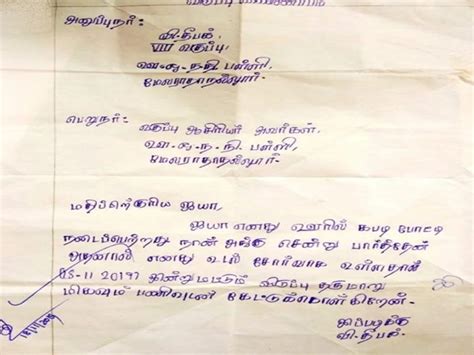 அனுப்புநர்:
வி.தீபக்,
VIII வகுப்பு,
ஊ.ஒ.ந.நி. பள்ளி,
மேலராதாநல்லூர்.
பெறுநர்:
வகுப்பு ஆசிரியர் அவர்கள்,
ஊ.ஒ.ந.நி. பள்ளி,
மேலராதாநல்லூர்.
மதிப்பிற்குரிய ஐயா
ஐயா எனது ஊரில் கபடி போட்டி
நடைபெற்றது நான் அங்கு சென்று பார்த்தேன்
அதனால் எனது உடல் சோர்வாக உள்ளதால்
இன்று மட்டும் விடுப்பு தருமாறு
மிகவும் பணிவுடன் கேட்டுக்கொள்கிறேன்.
இப்படிக்கு
வி.தீபக்.